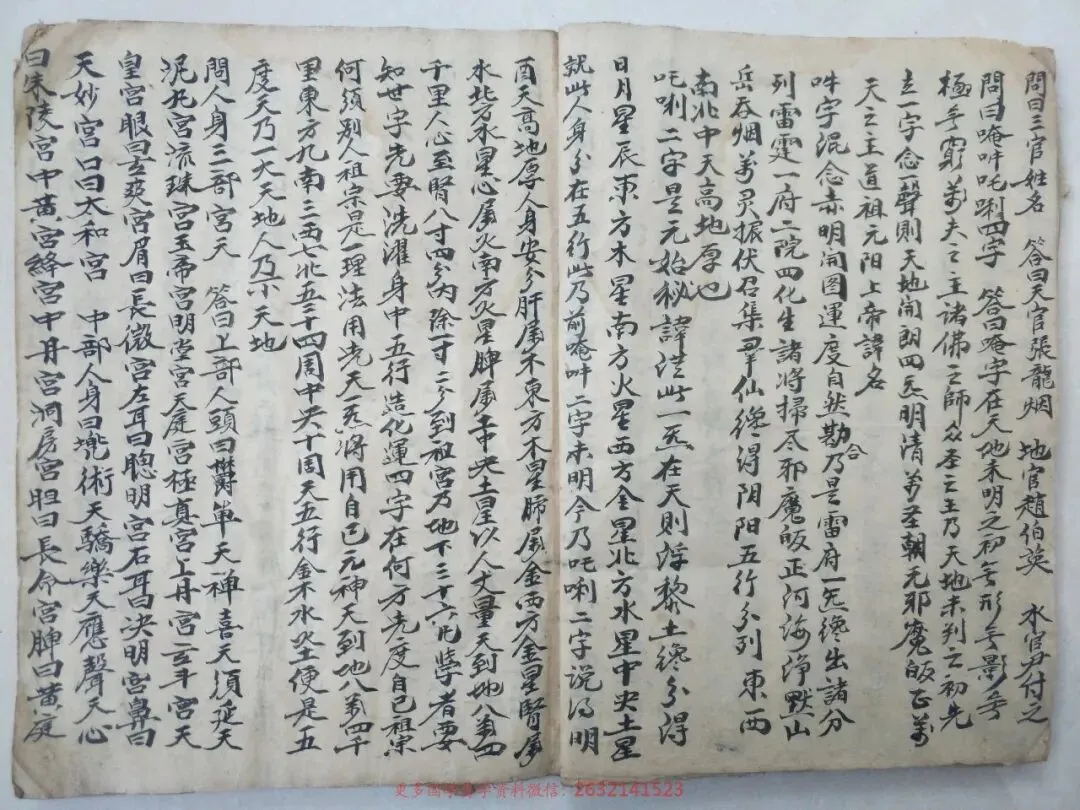 問曰三官姓名 答曰天官張龍烟 地官趙伯英 水官尹付之
問曰唵吽吒唎四字 答曰唵字在天地未明之初無形無影無
極無窮萬天之主諸佛之師众圣之主乃天地未判之初先
立一字念一聲則天地開朗四炁明清萬圣朝元邪魔皈正萬
天之主道祖元阳上帝諱名
吽字混念赤明開图運度自然勘合乃是雷府一炁纔出諸分
列雷霆一府二院四化生諸將掃尽邪魔皈正河海净默山
岳吞烟萬灵振伏召集羣仙纔得阴阳五行分列東西
南北中天高地厚也
吒唎二字是元始秘諱法此一炁在天則浮黎土纔分得
日月星辰東方木星南方火星西方金星北方水星中央土星
就此人身分在五行此乃前唵吽二字未明今乃吒唎二字説得明
酉天高地厚人身安分肝属木東方木星肺属金西方金星腎属
水北方水星心属火南方火星脾属土中央土星以人丈量天到地八萬四
千里人心至腎八寸四分內除一寸二分到祖宮乃地下三十六尺學者要
知世字先要洗濯身中五行造化運四字在何方先度自己祖宗
何須别人祖宗是一理法用先天炁將用自己元神天到地八萬四千
里東方九南三西七北五三十四周中央十周天五行金木水火土便是五
度天乃一大天地人乃小天地
問人身三部宮天 答曰上部人頭曰欝單天禅喜天須延天
泥丸宮流珠宮玉帝宮明堂宮天庭宮極真宮上丹宮玄斗宮天
皇宮眼曰玄爽宮眉曰長微宮左耳曰聰明宮右耳曰决明宮鼻曰
天妙宮口曰太和宮 中部人身曰兠術天驕樂天應聲天心
曰朱陵宮中黄宮絳宮中丹宮洞房宮胆曰長命宮脾曰黄庭
更多国学易学资料微信：2632141523